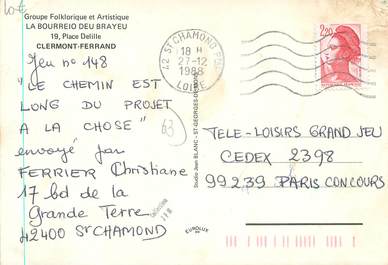 Groupe Folklorique et Artistique
LA BOURREIO DEU BRAYEU
19, Place Delille
CLERMONT-FERRAND
Jeu n° 148
"LE CHEMIN EST
LONG DU PROJET
A LA CHOSE"
envoyé par
FERRIER Christiane
17 bd de la
Grande Terre
42400 St CHAMOND
63
42 ST CHAMOND PPAL
18 H
27-12
1988
LOIRE
2,20
Studio Jean BLANC - ST-GEORGES-DE-MONS
EUROLUX
TELE-LOISIRS GRAND JEU
CEDEX 2398
99239 PARIS CONCOURS